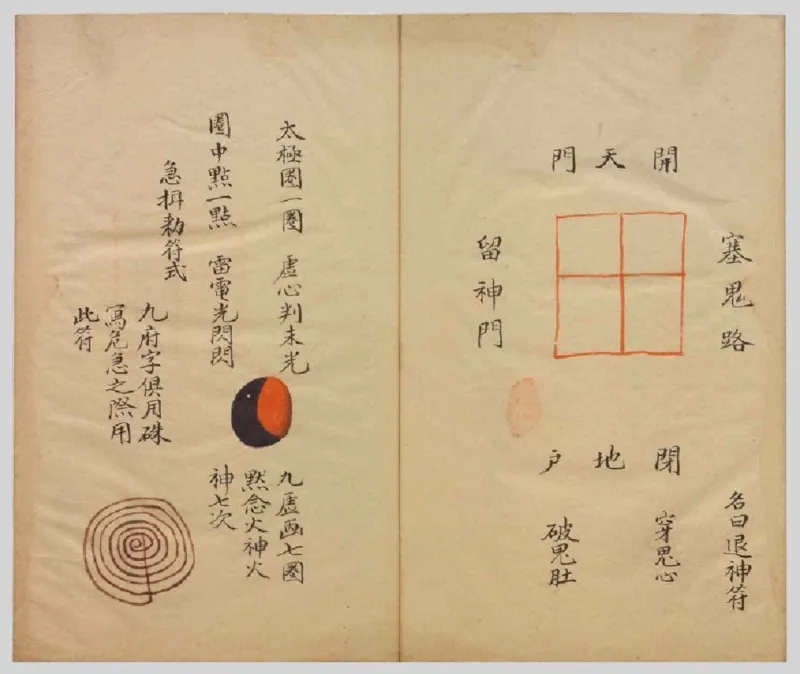 開天門
塞鬼路
留神門
閉地户
名曰退神符
穿鬼心
破鬼肚
太極圈一圈 虛心判未光
圈中點一點 雷電光閃閃
九虛画七圈
默念火神火
神七次
急揖勅符式
九府字俱用硃
寫危急之際用
此符